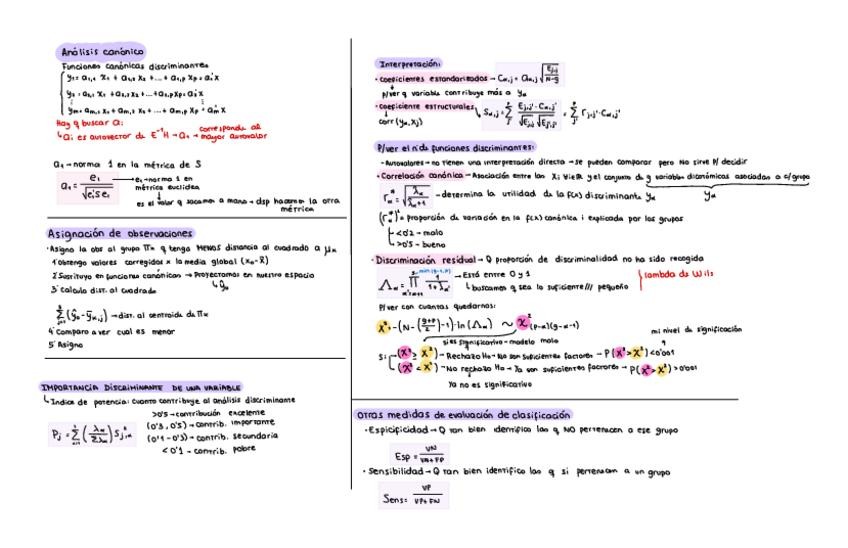 Análisis canónico
Funciones canónicas discriminantes
y₁ = a₁,₁ x₁ + a₁,₂ x₂ + ... + a₁,p xp = a₁'x
y₂ = a₂,₁ x₁ + a₂,₂ x₂ + ... + a₂,p xp = a₂'x
ym = am,₁ x₁ + am,₂ x₂ + ... + am,p xp = am'x
Hay q buscar a:
↳ ai es autovector de E⁻¹H → a₁ → corresponde al mayor autovalor
a₁ → norma 1 en la métrica de S
a₁ = e₁ / √(e₁'S e₁)
e₁ → norma 1 en métrica euclídea
es el valor q sacamos a mano → dsp hacemos la otra métrica
Asignación de observaciones
· Asigno la obs al grupo Πα q tenga MENOS distancia al cuadrado a
1º obtengo valores corregidos x la media global (x₀ - x̄)
2º Sustituyo en funciones canónicas → Proyectamos en nuestro espacio
↳ ŷ₀
3º calculo dist. al cuadrado
→ dist. al centroide de Πα
4º Comparo a ver cual es menor
5º Asigno
IMPORTANCIA DISCRIMINANTE DE UNA VARIABLE
↳ Indice de potencia: cuanto contribuye al análisis discriminante
>0'5 → contribución excelente
(0'3, 0'5) → contrib. importante
(0'1 - 0'3) → contrib. secundaria
< 0'1 - contrib. pobre
Interpretación:
· coeficientes estandarizados → Cα,j = aα,j √(Ej,j / N-g)
p/ver q variable contribuye más a yα
· coeficiente estructurales
corr (yα, xj)
P/ver el nº de funciones discriminantes:
- Autovalores → no tienen una interpretación directa → se pueden comparar pero No sirve p/ decidir
· Correlación canónica → Asociación entre las
y el conjunto de g variables dicotómicas asociadas a c/grupo
r*α = √(λα / λα+1) → determina la utilidad de la f(x) discriminante yα
yα
(r*α)² = proporción de variación en la f(x) canónica i explicada por los grupos
<0'2 - malo
>0'5 - bueno
· Discriminación residual → Q proporción de discriminalidad no ha sido recogida
→ Está entre 0 y 1
↳ buscamos q sea lo suficiente/// pequeño
lambda de Wils
P/ver con cuantas quedarnos:
X² = -(N - (g+p / 2) - 1) · ln(Λα) ~ X²(p-α)(g-α-1)
si es significativo - modelo malo
mi nivel de significación
Si: (X² ≥ X²) → Rechazo H₀ → No son suficientes factores → P(X² > X²) < 0'001
(X² < X²) → No rechazo H₀ → Ya son suficientes factores → P(X² > X²) > 0'001
Ya no es significativo
OTRAS MEDIDAS DE EVALUACIÓN DE CLASIFICACIÓN
· Espicificidad → Q tan bien identifico los q NO pertenecen a ese grupo
Esp = VN / VN+FP
· Sensibilidad → Q tan bien identifico los q si pertenecen a un grupo
Sens = VP / VP+FN